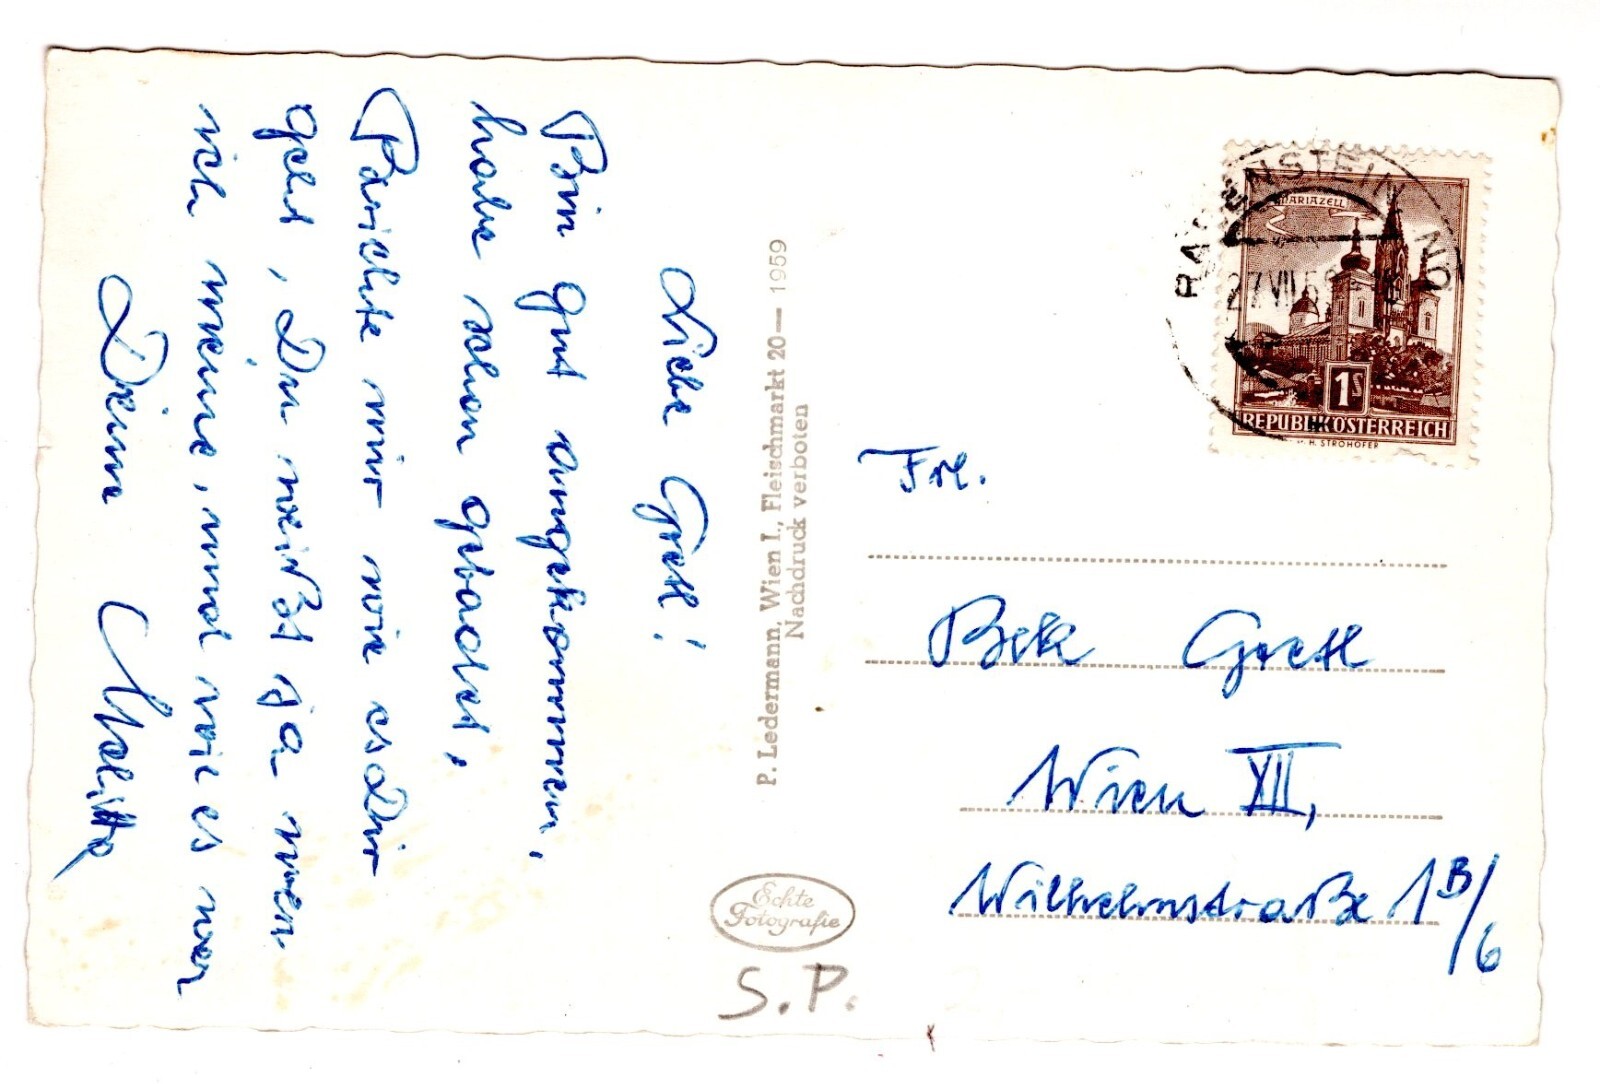 Liebe Gretl!
Bin gut angekommen,
habe schon gebadet,
Berichte mir wie es Dir
geht, Du weißt ja wen
ich meine, und wie es war
Deine Melitta
P. Ledermann, Wien I., Fleischmarkt 20 — 1959
Nachdruck verboten
Echte
Fotografie
S.P.
MARIAZELL
1S
REPUBLIK ÖSTERREICH
H. STROHOFER
27 VII 5
NÖ
Frl.
Bek Gretl
Wien XII,
Wilhelmstraße 1B/6